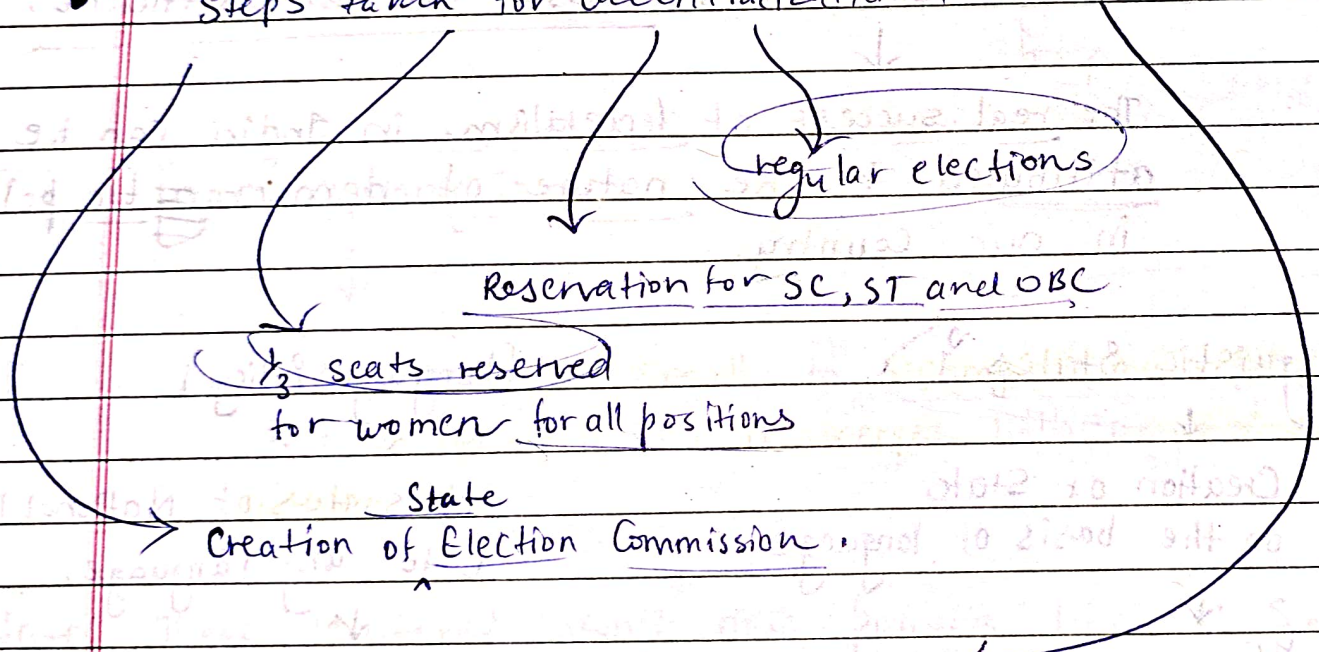 Steps taken for
regular elections
Reservation for SC, ST and OBC
1/3 seats reserved
for women for all positions
State
Creation of Election Commission.